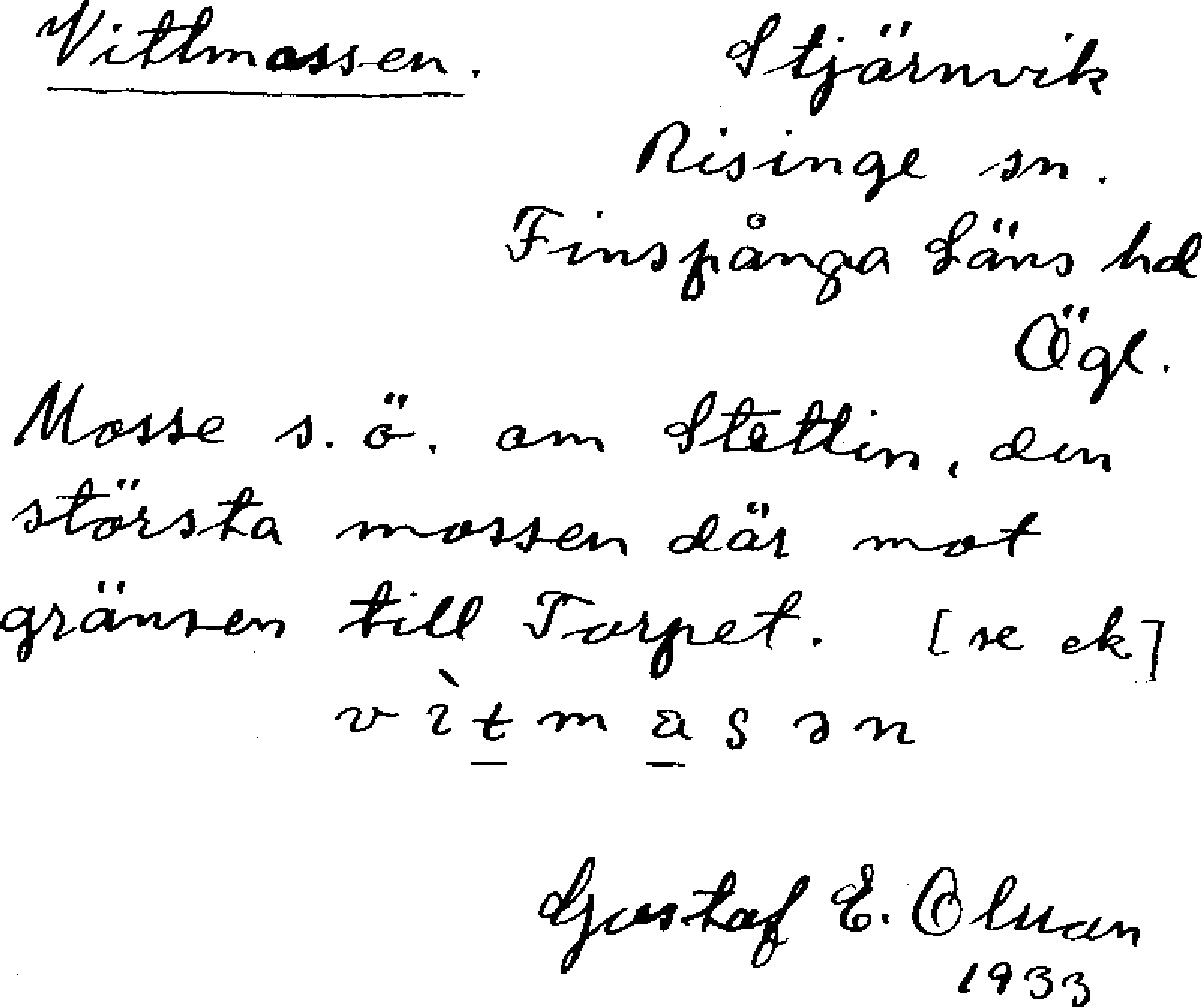 Vittmossen.
Stjärnvik
Risinge sn.
Finspånga Läns hd
Ögl.
Mosse s.ö. om Stettin, den
största mossen där mot
gränsen till Torpet. [se ek]
vìtmasən
Gustaf E. Olsson
1933